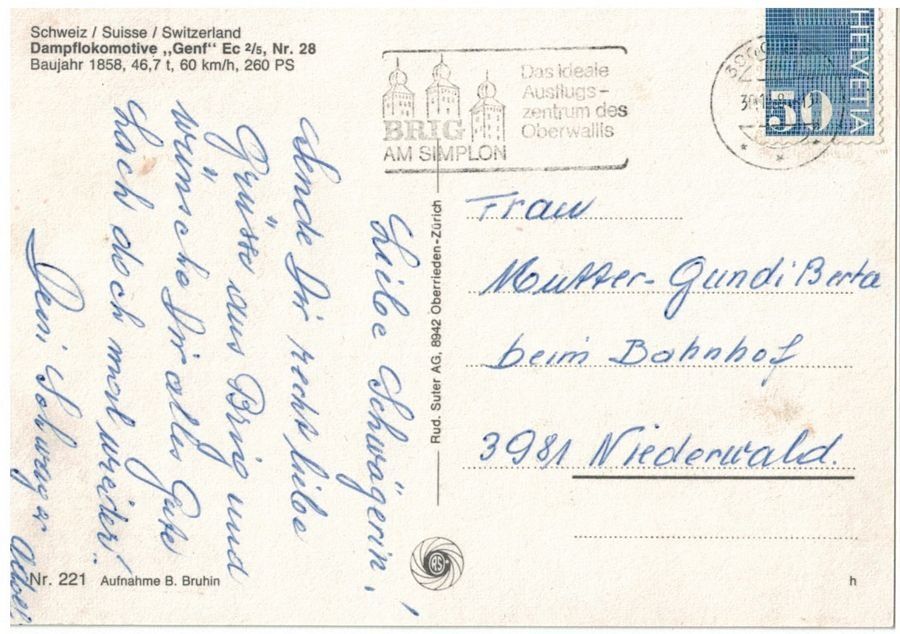 Schweiz / Suisse / Switzerland
Dampflokomotive „Genf“ Ec 2/5, Nr. 28
Baujahr 1858, 46,7 t, 60 km/h, 260 PS
BRIG
AM SIMPLON
Das ideale
Ausflugs-
zentrum des
Oberwallis
HELVETIA
50
Liebe Schwägerin!
Sende Dir recht liebe
Grüsse aus Brig und
wünsche Dir alles Gute
Lach doch mal wieder!
Dein Schwager
Rud. Suter AG, 8942 Oberrieden-Zürich
Frau
Mutter-Gundi Berta
beim Bahnhof
3981 Niederwald.
Nr. 221 Aufnahme B. Bruhin
h